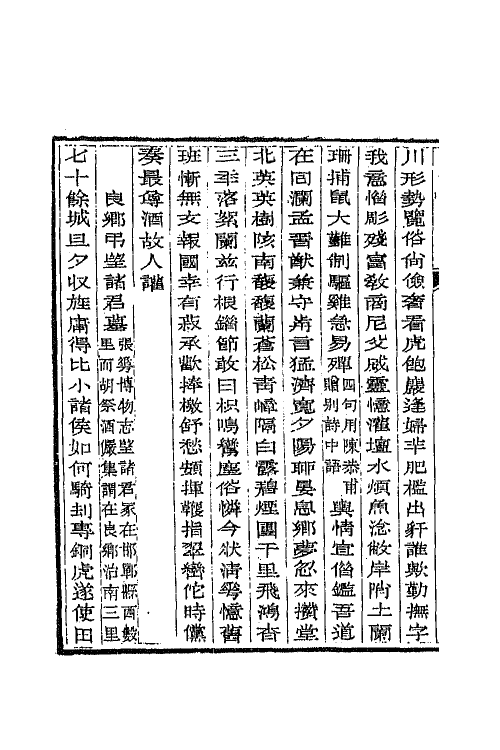 川形勢覽俗尚儉奢看虎飽巖逢婦羊肥檻出豻誰歟勤撫字
我意惱彫殘富敎商尼父威靈憶灌壇水煩魚淰敝岸附土蘭
珊捕鼠大難制驅雞急易殫四句用陳恭甫贈別詩中語輿情宜借鑑吾道
在回瀾孟晋猷兼守肯言猛濟寬夕陽聊晏息鄉夢忽來攢堂
北英英樹陔南馥馥蘭蒼松靑嶂隔白露碧煙團千里飛鴻杳
三年落絮闌兹行根錯節敢曰枳鳴鸞塵俗憐今狀淸㝱憶舊
班慚無文報國幸有菽承歡捧檄舒愁頞揮鞭指翠巒佗時儻
奏最尊酒故人讙
良鄉弔望諸君墓張㝱博物志望諸君冢在邯鄲縣西數里而胡祭酒儼集謂在良鄉治南三里
七十餘城旦夕収旌庸得比小諸侯如何騎刦專銅虎遂使田